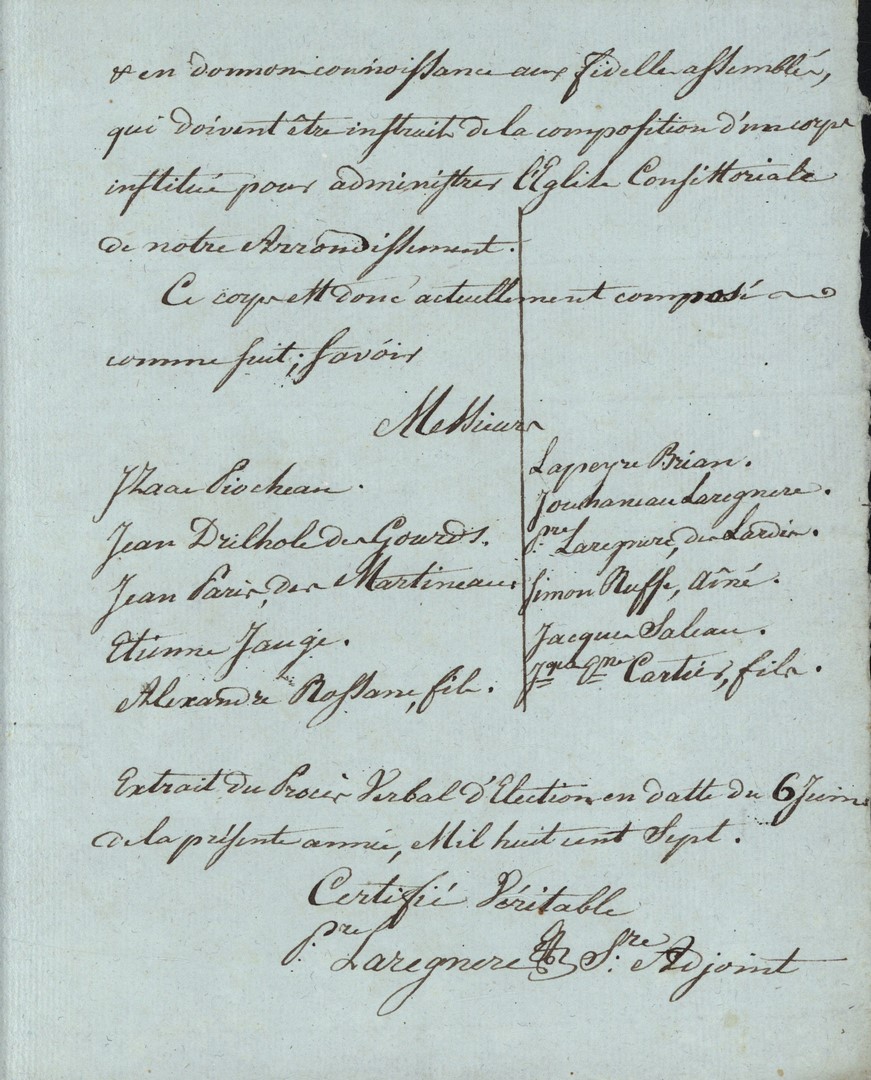 & en donnon connoissance aux fidelle assemblés,
qui doivent être instruit de la composition d'un corps
institué pour administrer l'Eglise Consistoriale
de notre Arrondissement.
Ce corps est donc actuellement composé
comme suit; savoir
Messieurs
Izaac Piocheau.
Jean Drilhole des Gourds.
Jean Paris, des Martineaux
Etienne Jauge.
Alexandre Rossane, fils.
Lapeyre Brian.
Jouhaneau Laregnere.
P.re Laregnere, des Lardis.
Simon Ruffe, Aîné.
Jacques Saleau.
J.ques E.ne Cartier, fils.
Extrait du Procès Verbal d'Election, en datte du 6 Juin
de la présente année, Mil huit cent Sept.
Certifié Véritable
P.re Laregnere S.re Adjoint